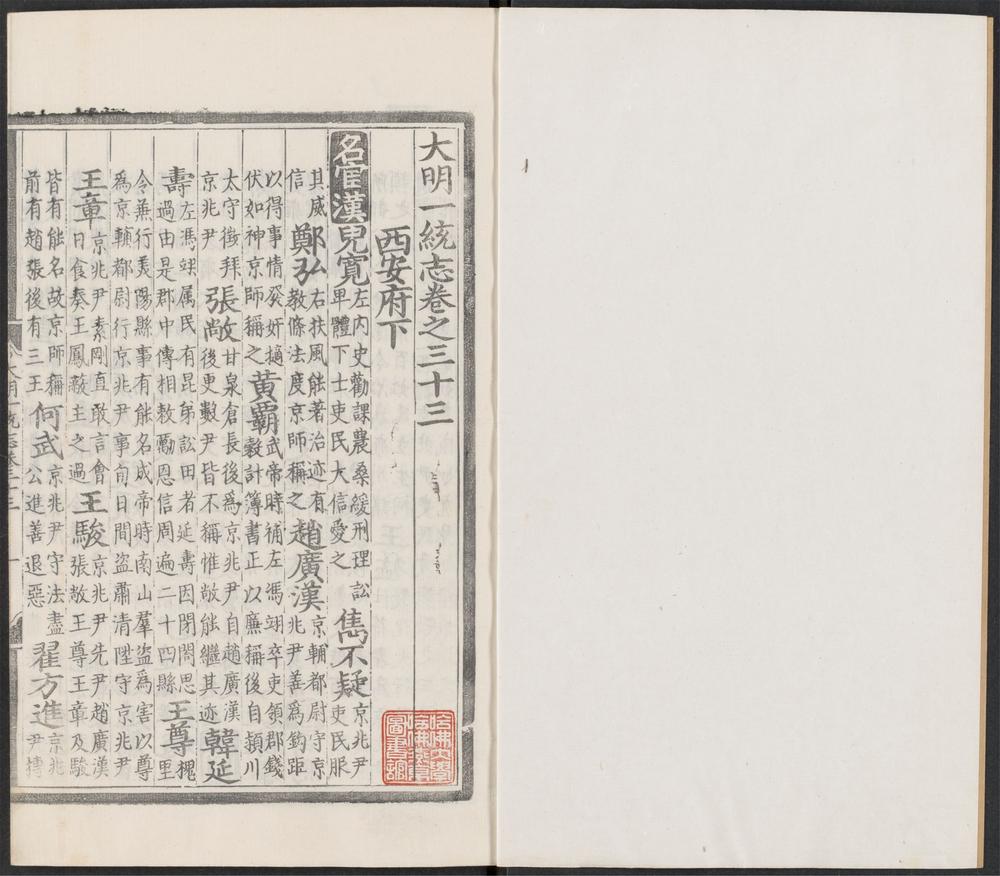 大明一統志卷之三十三
西安府下
名宦漢兒寬左内史勸課農桑緩刑理訟卑體下士吏民大信愛之雋不疑京兆尹吏民服
其威信鄭弘右扶風能著治迹有教條法度京師稱之趙廣漢京輔都尉守京兆尹善爲鈎距
以得事情發奸擿伏如神京師稱之黄霸武帝時補左馮翊卒吏領郡錢穀計簿書正以廉稱後自潁川
太守徵拜京兆尹張敞甘泉倉長後爲京兆尹自趙廣漢後更數尹皆不稱惟敞能繼其迹韓延
壽左馮翊属民有昆弟訟田者延壽因閉閤思過由是郡中傳相敕勵恩信周遍二十四縣王尊槐里
令兼行美陽縣事有能名成帝時南山羣盗爲害以尊爲京輔都尉行京兆尹事旬日間盗肅清陞守京兆尹
王章京兆尹素剛直敢言會日食奏王鳳蔽主之過王駿京兆尹先尹趙廣漢張敞王尊王章及駿
皆有能名故京師稱前有趙張後有三王何武京兆尹守法盡公進善退惡翟方進京兆尹摶
大明一統志卷三十三 一
哈佛大學哈佛燕京圖書館